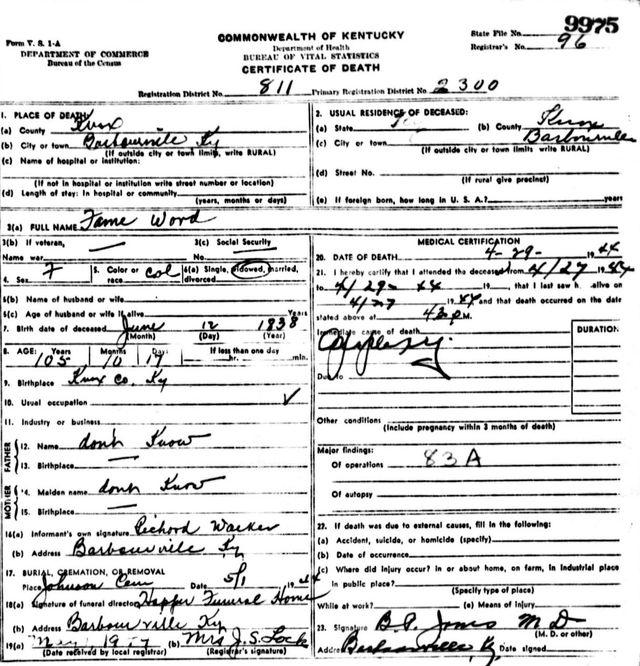 Form V. S. 1-A
DEPARTMENT OF COMMERCE
Bureau of the Census
COMMONWEALTH OF KENTUCKY
Department of Health
BUREAU OF VITAL STATISTICS
CERTIFICATE OF DEATH
State File No. 9975
Registrar's No. 96
Registration District No. 811 Primary Registration District No. 2300
1. PLACE OF DEATH
(a) County Knox
(b) City or town Barbourville Ky
(If outside city or town limits, write RURAL)
(c) Name of hospital or institution:
(If not in hospital or institution write street number or location)
(d) Length of stay: In hospital or community
(years, months or days)
2. USUAL RESIDENCE OF DECEASED:
(a) State (b) County Knox
(c) City or town Barbourville
(If outside city or town limits, write RURAL)
(d) Street No.
(If rural give precinct)
(e) If foreign born, how long in U. S. A.? years
3(a) FULL NAME Fame Word
3(b) If veteran, Name war — 3(c) Social Security No. —
4. Sex F 5. Color or race Col 6(a) Single, widowed, married, divorced
6(b) Name of husband or wife
6(c) Age of husband or wife if alive Years
7. Birth date of deceased June 12 1838
(Month) (Day) (Year)
8. AGE: Years Months Days If less than one day
105 10 17 hr. min.
9. Birthplace Knox Co. Ky
10. Usual occupation ✓
11. Industry or business
FATHER
12. Name don't Know
13. Birthplace —
MOTHER
14. Maiden name don't Know
15. Birthplace —
16(a) Informant's own signature Richard Walker
(b) Address Barbourville Ky
17. BURIAL, CREMATION, OR REMOVAL
Place Johnson Cem Date 5/1 1944
18(a) Signature of funeral director Hopper Funeral Home
(b) Address Barbourville Ky
19(a) May (b) Mrs J. S. Lock
(Date received by local registrar) (Registrar's signature)
MEDICAL CERTIFICATION
20. DATE OF DEATH 4-29- 1944
21. I hereby certify that I attended the deceased from 4/27 1944
to 4/29- 44 19, that I last saw h alive on
4/27 1944 and that death occurred on the date
stated above at 430 P M.
Immediate cause of death
Apoplexy.
DURATION
Due to
Other conditions
(Include pregnancy within 3 months of death)
Major findings:
Of operations 83A
Of autopsy
22. If death was due to external causes, fill in the following:
(a) Accident, suicide, or homicide (specify)
(b) Date of occurrence
(c) Where did injury occur? in or about home, on farm, in industrial place
in public place?
(Specify type of place)
While at work? (e) Means of injury
23. Signature B. P. Jones M D
(M. D. or other)
Address Barbourville Ky Date signed